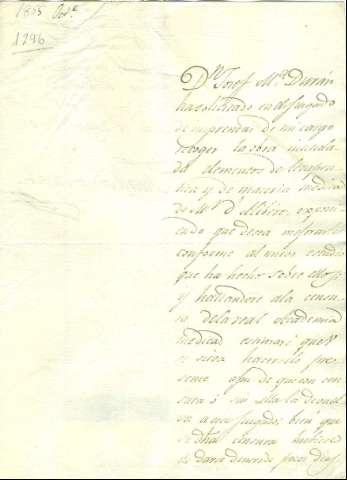 1835 Oct.e
1296
Dn. Josef Ma. Durán
ha solicitado en el Juzgado
de imprentas de mi cargo
recoger la obra intitula-
da elementos de terapeu-
tica y de materia médica
de Mr. d' Alibert, exponi-
endo que desea mejorarla
conforme al nuevo estudio
que ha hecho sobre ella
y hallandose a la censu-
ra de la real Academia
medica estimaré que V.
se sirva hacerlo pre-
sente a fin de que con cen-
sura ó sin ella la devuel-
va a este Juzgado; bien que
si dha censura hubiese
de darse dentro de pocos dias